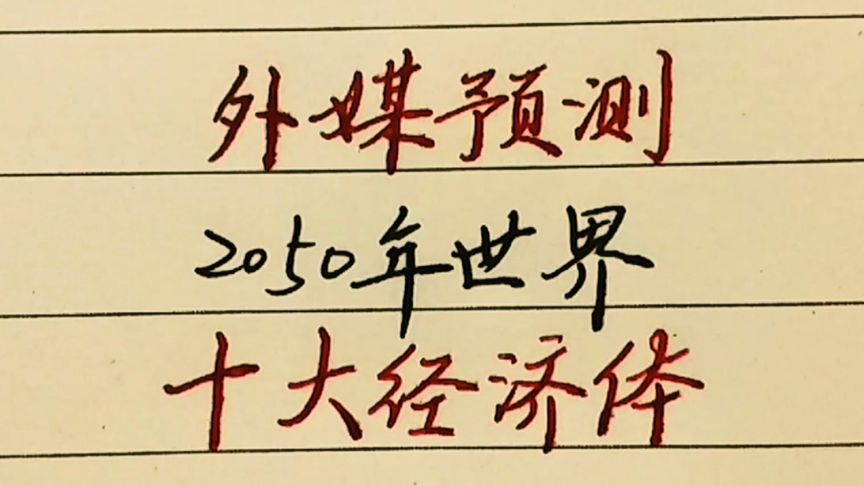 外媒预测
2050年世界
十大经济体